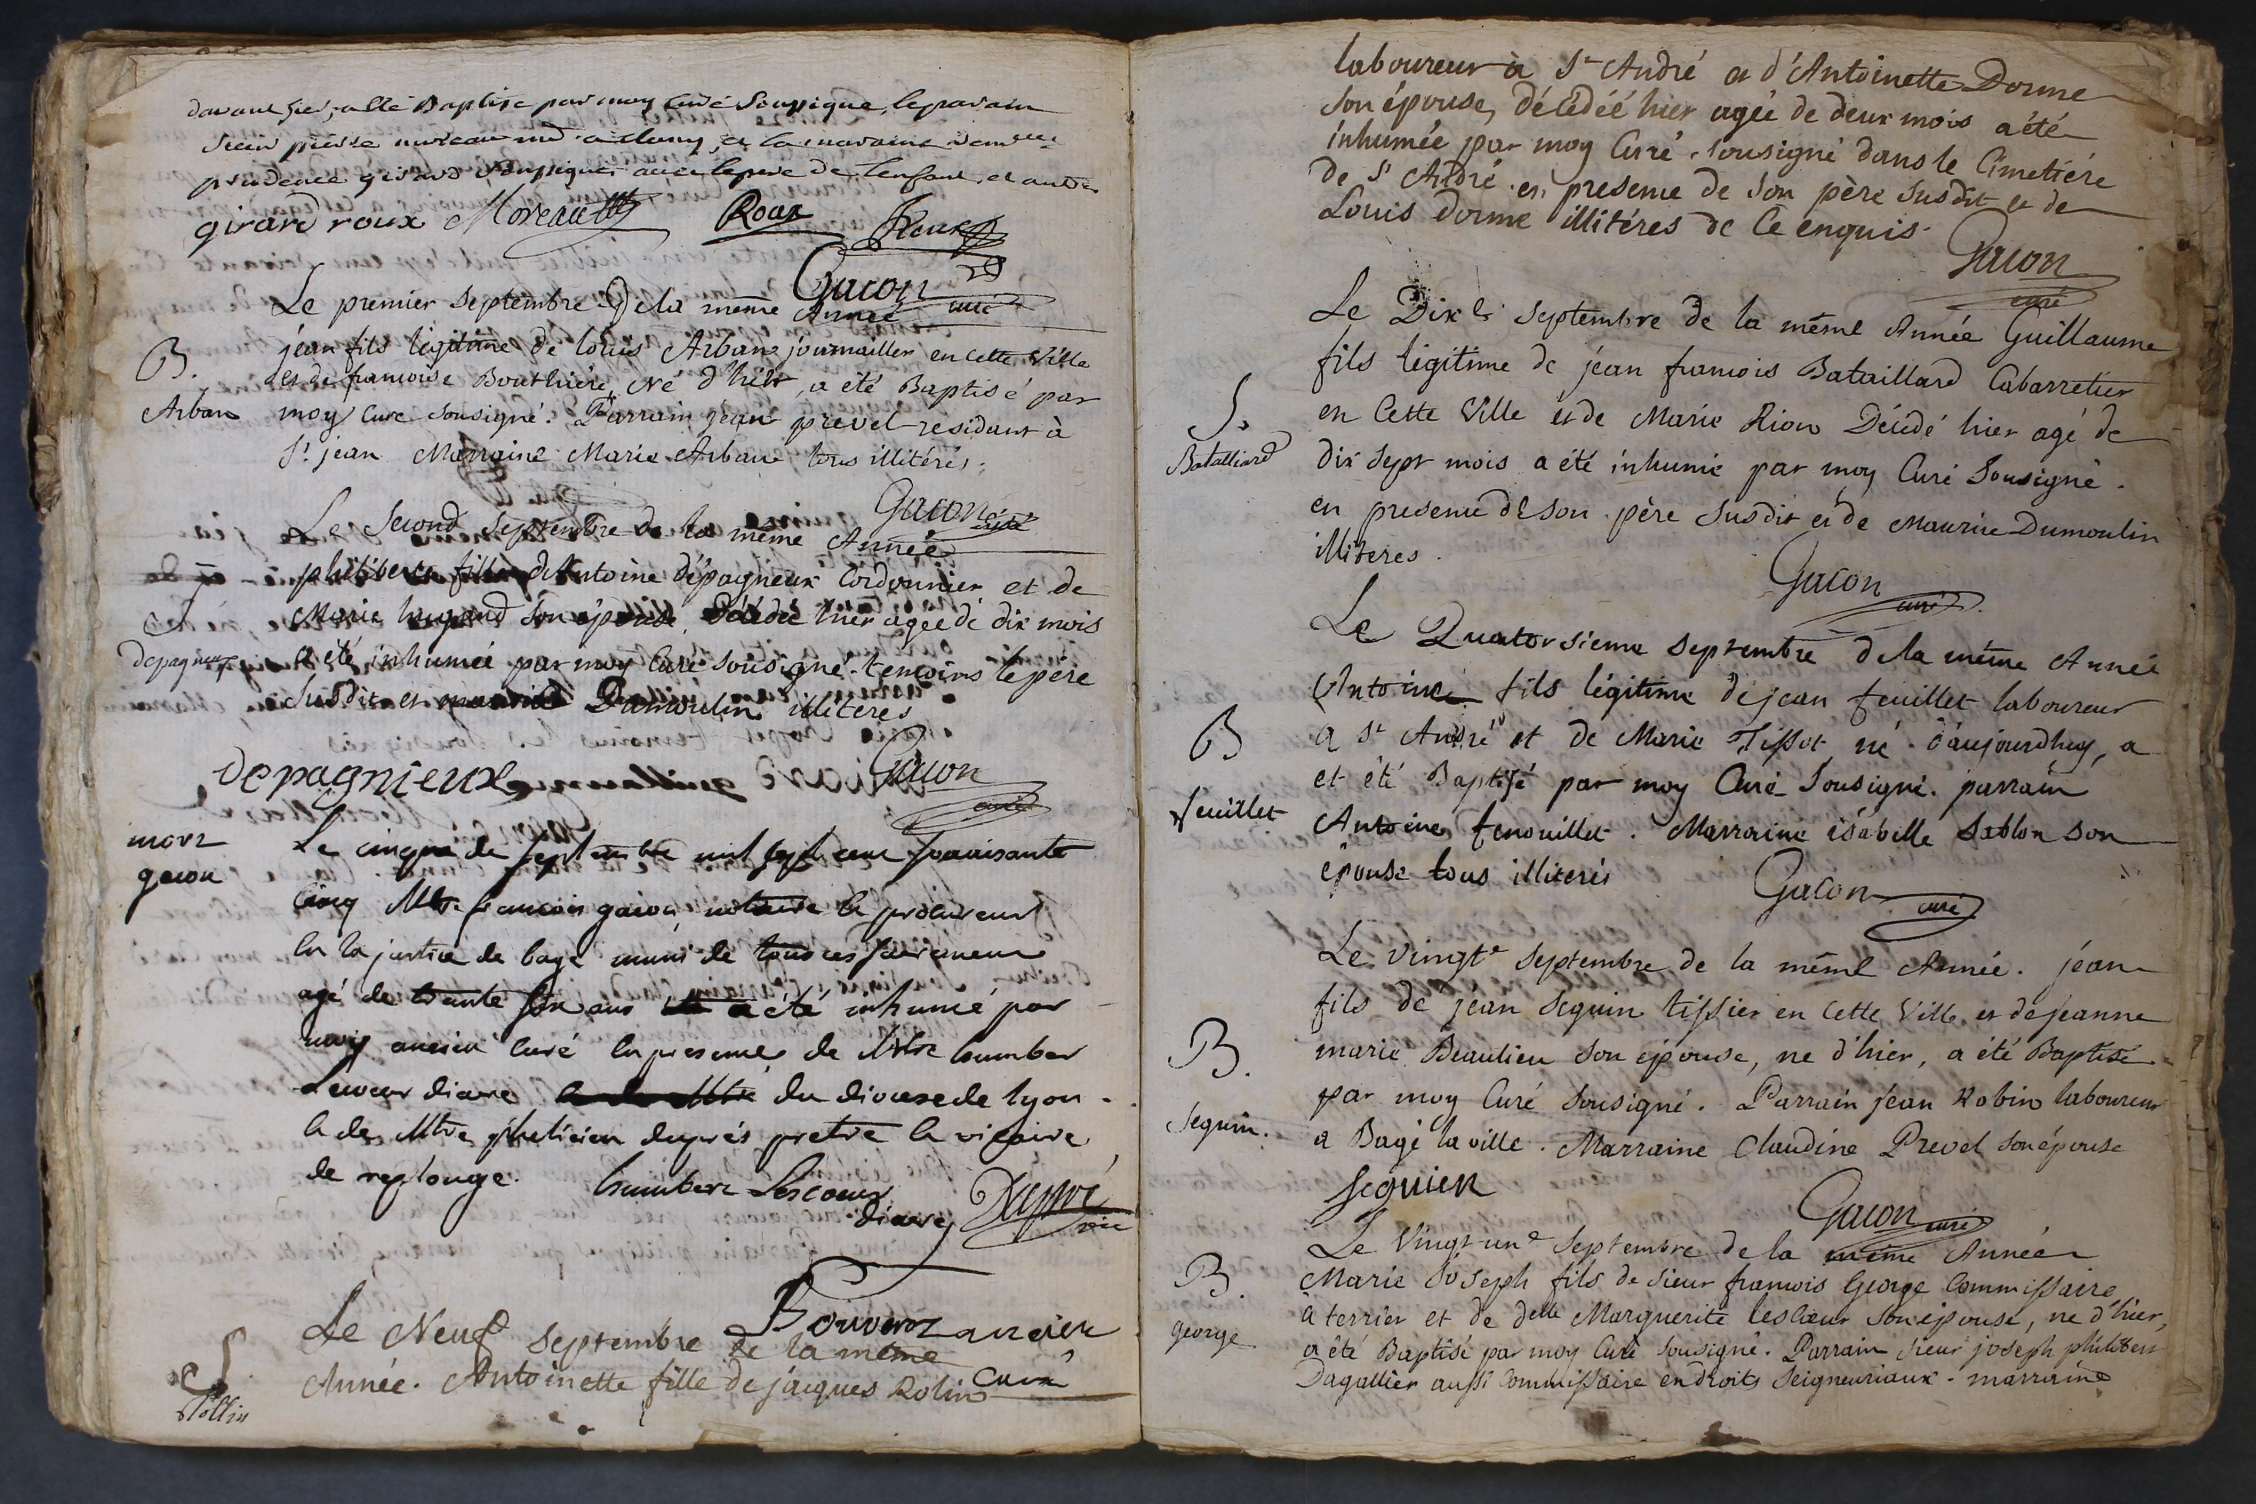 davant hier, a été Baptisé par moy Curé Soussigné, le parain
Sieur pierre moreau md a Cluny, et la maraine demlle
prudence girard Soussignés avec le pere de l'enfant et autres
girard roux Moreau Roux Roux
Gacon curé
Le premier Septembre de la même Année
jéan fils légitime de loüis Arban journaillier en cette Ville
B.
et de francoise Bouthière, Né d'hièr, a été Baptisé par
Arban
moy Curé Sousigné. Parrain jean prevel résidant à
St jean Marraine Marie Arban tous illitérés.
Gacon curé
Le Second Septembre de la même Année
philiberte fille d'Antoine dépagneux Cordonnier et de
S
Marie hugand son épouse, Décédée hier agée de dix mois
depagneux
a été inhumée par moy Curé sousigné. temoins le père
Susdit et maurice Dumoulin illiteres
depagnieux
Gacon curé
mort
gacon
Le cinque de septembre mil sept cent soixante
Cinq Mtre francois gacon notaire & procureur
en la justice de bagé muni de tous ces sacremens
agé de trante six ans a été inhumé par
moy ancien curé en presence de Mtre humber
Lescœur diacre du diocese de lyon.
& de Mtre duprés pretre & vicaire
de replonge.
humbert Lescoeur
diacre
Dupré vic
Bouveroz ancien
Curé
Le Neufe Septembre de la même
S
Année. Antoinette fille de jacques Rolin
Rollin
laboureur à St André et d'Antoinette Dorme
Son épouse, décédéé hier agéé de deux mois a été
inhumée par moy Curé Sousigné dans le Cimetiére
de St André en presence de son père susdit et de
Louis Dorme illitéres de Ce enquis.
Gacon
curé
Le Dixe Septembre de la même Année Guillaume
fils légitime de jéan francois Bataillard Cabarretier
S.
en Cette Ville et de Marie Rion Décédé hier agé de
Batalliard
dix sept mois a été inhumé par moy Curé Sousigné.
en presence de son père susdit et de Maurice Dumoulin
illiteres.
Gacon
curé
Le Quatorsieme Septembre de la même Année
Antoine fils légitime de jean feuillet laboureur
B
a St André et de Marie Tissot né d'aujourdhuy, a
et été Baptisé par moy Curé Sousigné. parrain
feuillet
Antoine fenouillet. Marraine isabelle Sablon son
épouse tous illiterés
Gacon
curé
Le vingte Septembre de la même Année. jéan
fils de jéan Seguin tissier en Cette Ville et de jeanne
B.
marie Beaulieu son épouse, ne d'hier, a été Baptisé
par moy Curé Sousigné. Parrain jéan Robin laboureur
Seguin.
a Bagé la ville. Marraine Claudine Prevel son épouse
Seguien
Gacon curé
Le Vingt-une Septembre de la même Année
B.
Marie Joseph fils de Sieur francois George Commissaire
à terrier et de delle Marguerite lescœur son épouse, ne d'hier,
george
a été Baptisé par moy Curé Sousigné. Parrain Sieur joseph philibert
Dagallier aussi Commissaire en droits Seigneuriaux. marraine